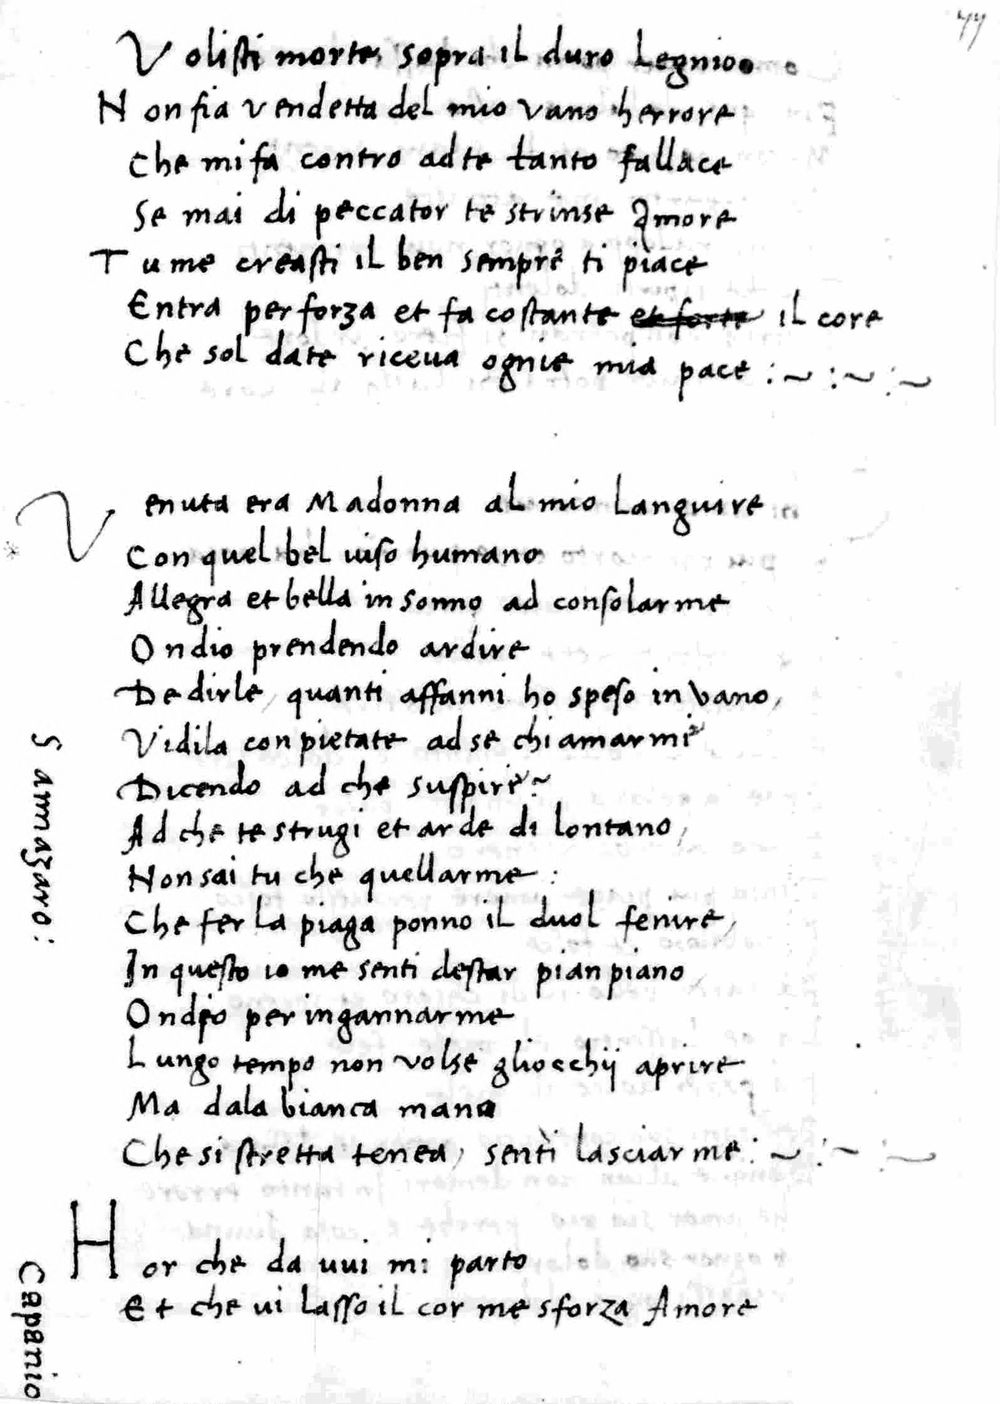 77
Volisti morte, sopra il duro Legnio
Non fia vendetta del mio vano herrore
Che mi fa contro ad te tanto fallace
Se mai di peccator te strinse Amore
Tu me creasti il ben sempre ti piace
Entra per forza et fa costante et forte il core
Che sol da te riceva ognie mia pace :~ :~ :~
Venuta era Madonna al mio Languire
Con quel bel viso humano
Allegra et bella in sonno ad consolarme
Ondio prendendo ardire
De dirle, quanti affanni ho speso in vano,
Vidila con pietate ad se chiamarmi
Dicendo ad che suspire~
Ad che te strugi et arde di lontano,
Non sai tu che quellarme :
Che fer la piaga ponno il duol fenire,
In questo io me senti destar pian piano
Ondeo per ingannarme
Lungo tempo non volse gliocchij aprire
Ma dala bianca mano
Che si stretta tenea, senti lasciarme :~ :~ :~
Sannazaro:
Hor che da vui mi parto
Et che vi lasso il cor me sforza Amore
Capanio